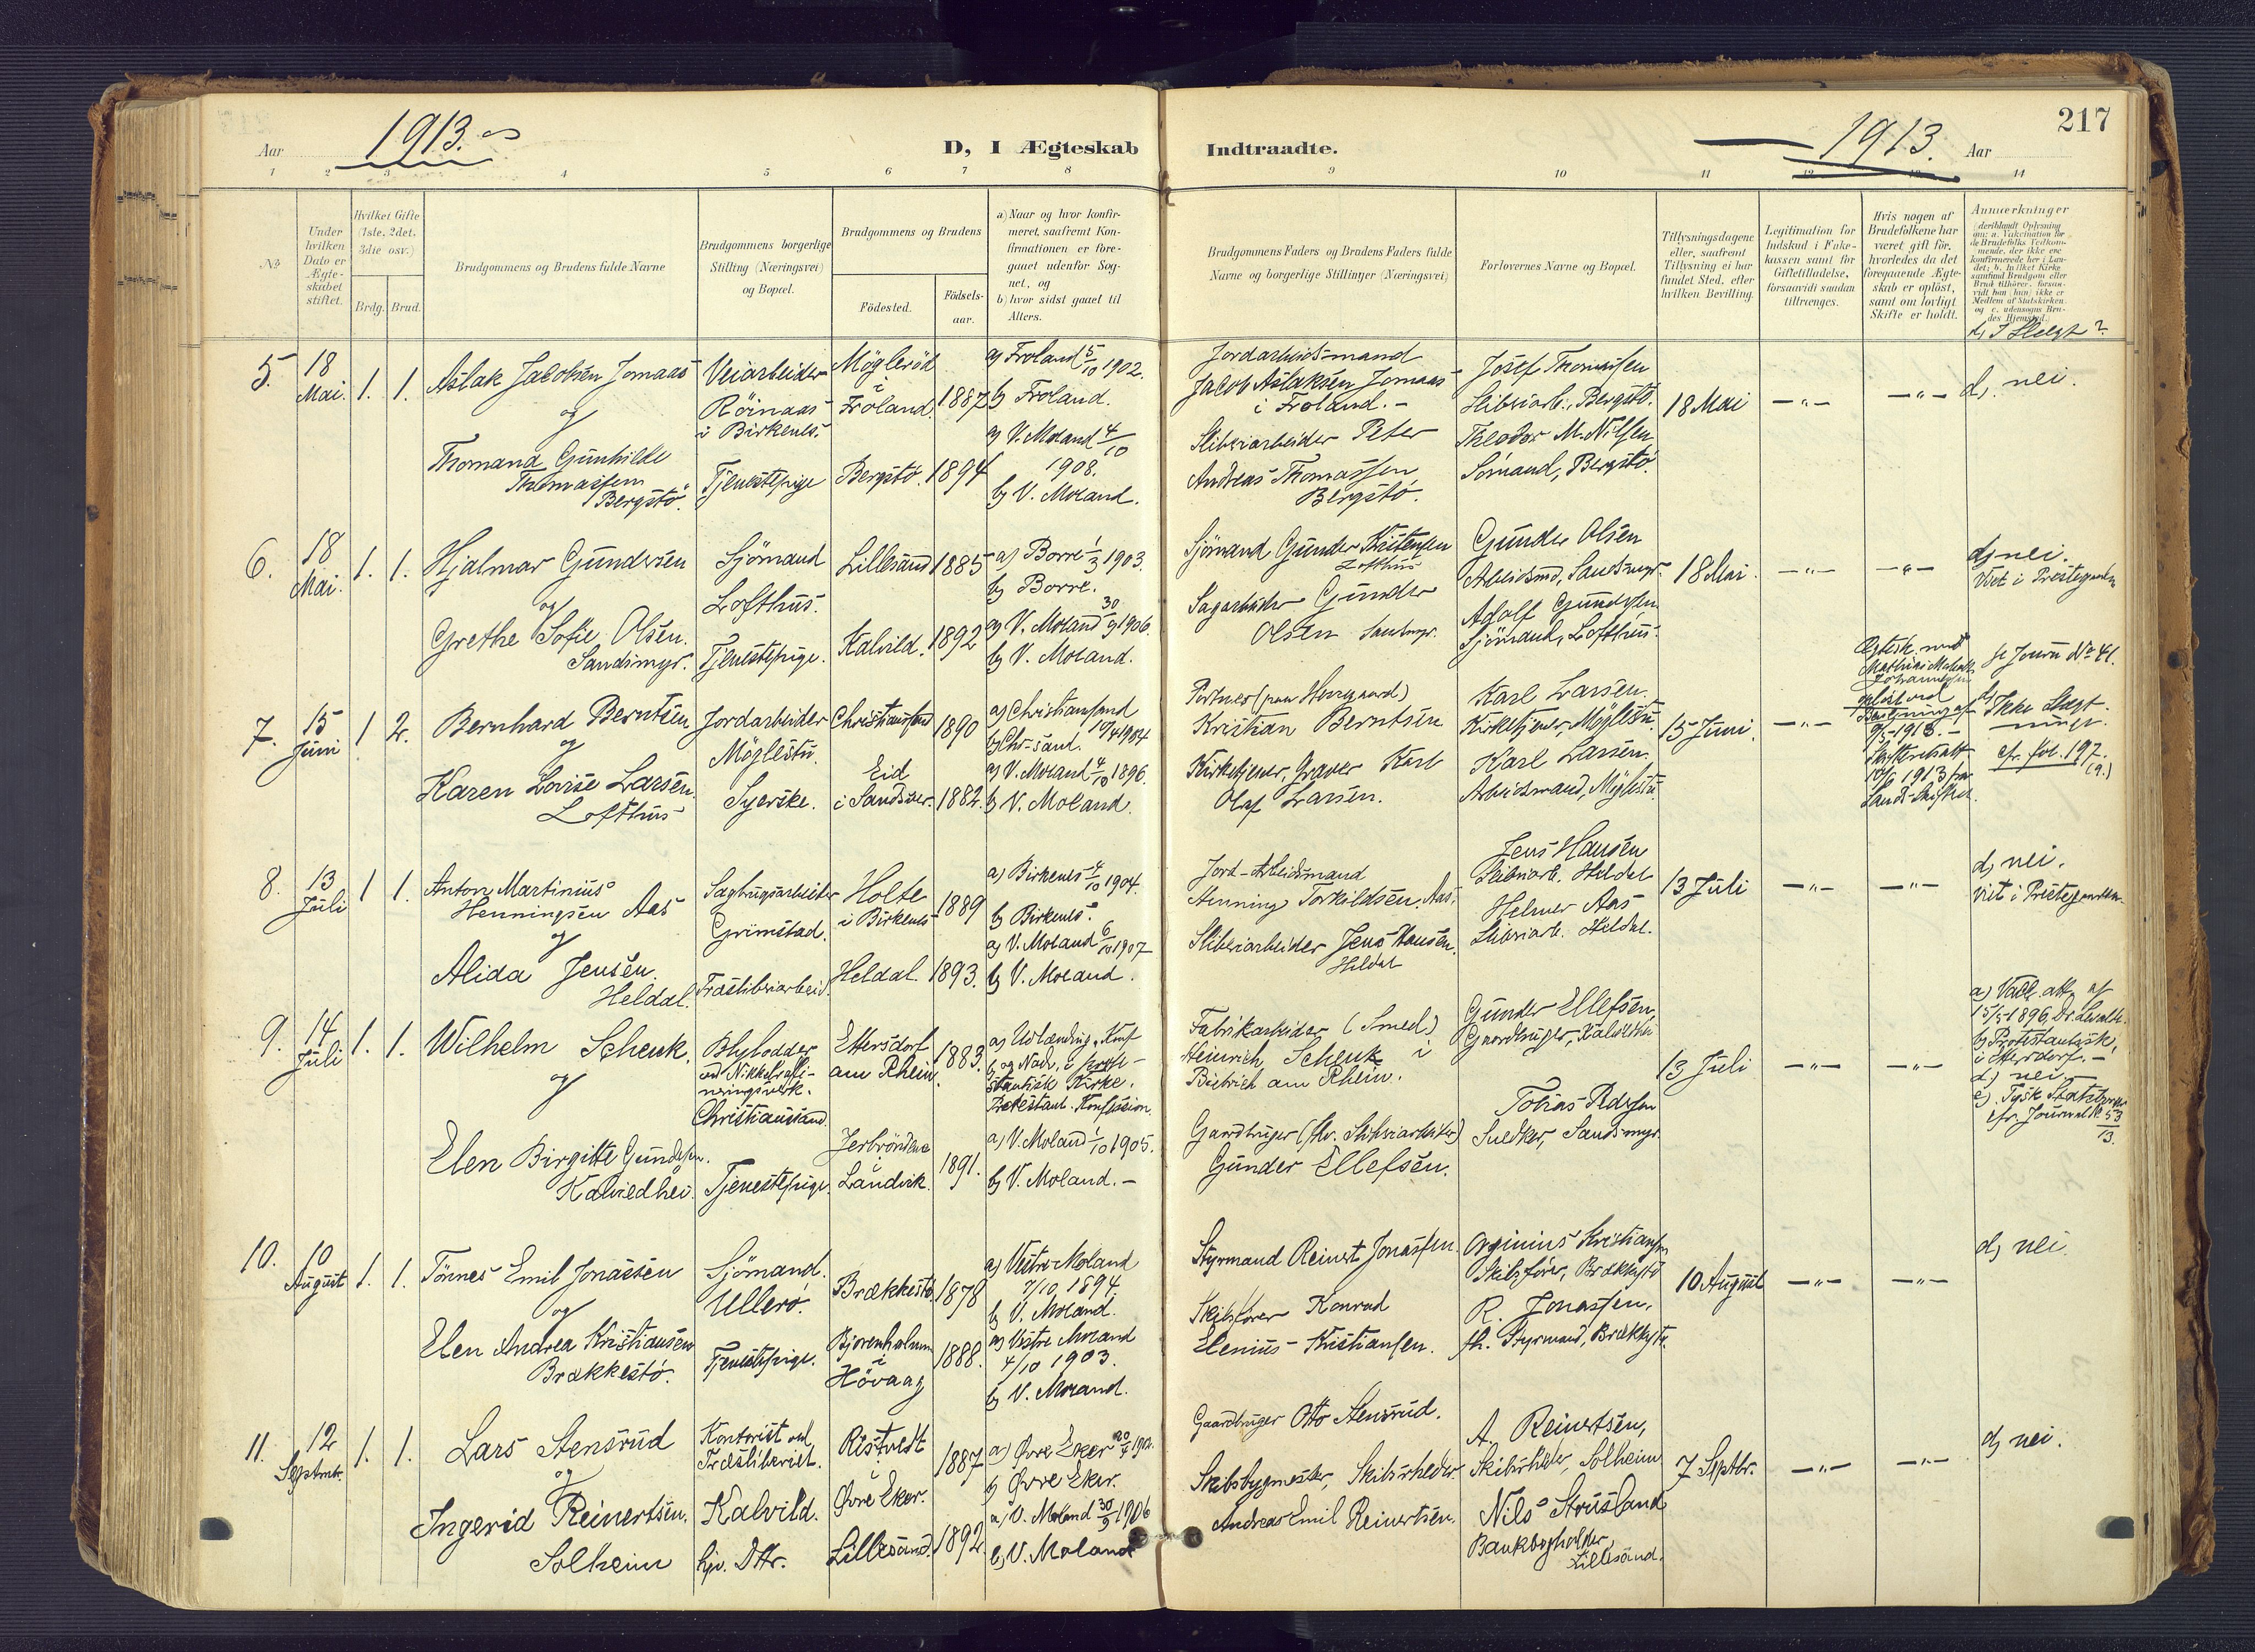 217
Aar 1913.
D, I Ægteskab Indtraadte.
1913. Aar
1 2 3 4 5 6 7 8 9 10 11 12 13 14
No
Under hvilken Dato er Ægteskabet stiftet.
Hvilket Gifte (1ste, 2det, 3die osv.)
Brdg. Brud.
Brudgommens og Brudens fulde Navne
Brudgommens borgerlige Stilling (Næringsvei) og Bopæl.
Brudgommens og Brudens
Födested.
Födselsaar.
a) Naar og hvor konfirmeret, saafremt Konfirmationen er foregaaet udenfor Sognet, og
b) hvor sidst gaaet til Alters.
Brudgommens Faders og Brudens Faders fulde Navne og borgerlige Stillinger (Næringsvei)
Forlovernes Navne og Bopæl.
Tillysningsdagene eller, saafremt Tillysning ei har fundet Sted, efter hvilken Bevilling.
Legitimation for Indskud i Enkekassen samt for Giftetilladelse, forsaavidt saadan tiltrænges.
Hvis nogen af Brudefolkene har været gift för, hvorledes da det foregaaende Ægteskab er oplöst, samt om lovligt Skifte er holdt.
Anmerkninger (deriblandt Oplysning om: a. Vakcination for de Brudefolks Vedkommende, der ikke ere konfirmerede her i Landet; b. hvilket Kirkesamfund Brudgom eller Brud tilhörer, forsaavidt han (hun) ikke er Medlem af Statskirken, og c. udensogns Brudes Hjemsted.)
d, I Slegt?
5. 18 Mai. 1. 1.
Aslak Jacobsen Jomaas
og
Thomand Gunhilde
Thomassen
Bergstø.
Veiarbeider
Röinaas
i Birkenes.
Tjenestepige
Møglerød
i
Froland. 1887
Bergstø. 1894
a) Froland 5/10 1902.
b) Froland.
a) V. Moland 4/10
1908.
b) V. Moland.
Jordarbeidsmand
Jacob Aslaksen Jomaas
i Froland. -
Sliberiarbeider Peter
Andreas Thomassen
Bergstø.
Josef Thomassen
Sliberiarb., Bergstø.
Theodor M. Nilsen
Sømand, Bergstø.
18 Mai —„— —„—
d, nei.
6. 18 Mai. 1. 1.
Hjalmar Gundersen
og
Grethe Sofie Olsen.
Sandsmyr.
Sjömand
Lofthus.
Tjenestepige.
Lillesand 1885
Kalvild. 1892
a) Borre 1/3 1903.
b) Borre.
a) V. Moland 30/9 1906.
b) V. Moland.
Sjömand Gunder Kristensen
Lofthus
Sagarbeider Gunder
Olsen Sandsmyr.
Gunder Olsen
Arbeidsmd, Sandsmyr.
Adolf Gundersen
Sjömand, Lofthus.
18 Mai. —„— —„—
d, nei.
Viet i Prestegaarden
7. 15 Juni 1 2.
Bernhard Berntsen
og
Karen Lovise Larsen.
Lofthus
Jordarbeider
Møglestu.
Syerske.
Christianssand 1890
Eid
i Sandsver. 1882.
a) Christianssand
b) Chr-sand. 10/4 1904
a) V. Moland 4/10 1896.
b) V. Moland.
Portner (paa Herregaard)
Kristian Berntsen
Kirketjener, Graver Karl
Olaf Larsen.
Karl Larsen.
Kirketjener, Møglestu.
Karl Larsen.
Arbeidsmand, Møglestu.
15 Juni. —„—
Ægtesk. med
Mathias
Johannesen
opløst ved
Bevilling af
9/5 - 1913. -
Skifteattest
10/6 1913 fra
Sands Skifteret.
Se Journ No 41.
d, Ikke Slegt-
ninger.
cfr. fol. 197.
(9.)
8. 13 Juli 1 1.
Anton Martinius
Henningsen Aas
og
Alida Jensen.
Heldal.
Sagbrugsarbeider
Grimstad.
Træsliberiarbeid.
Holte
i Birkenes 1889
Heldal. 1893.
a) Birkenes 4/10 1904.
b) Birkenes.
a) V. Moland 6/10 1907
b) V. Moland.
Jord-Arbeidsmand
Henning Torkildsen. Aas.
Sliberiarbeider Jens Hansen.
Heldal
Jens Hansen
Sliberiarb. Heldal
Helmer Aas
Sliberiarb. Heldal.
13 Juli —„— —„—
d, nei.
Viet i Prestegaarden
9. 14 Juli 1. 1.
Wilhelm Schenk.
og
Elen Birgitte Gundersen.
Kalviedhei.
Blylodder
ved Nikkelraffi-
neringsverk.
Christianssand.
Tjenestepige.
Ettersdorf
am Rhein. 1883.
Jerbröndene
i
Landvik. 1891.
a) Udlænding, Konf.
b) og Nadv. i prote-
stantisk Kirke.
Protestant. Konfession.
a) V. Moland 1/10 1905.
b) V. Moland. -
Fabrikarbeider (Smed)
Heinrich Schenk i
Biebrich am Rhein.
Gaardbruger (fhv. Sliberiarbeider)
Gunder Ellefsen.
Gunder Ellefsen,
Gaardbruger, Kalviedhei
Tobias Pedersen
Snedker, Sandsmyr.
13 Juli —„— —„—
a) Vacc. att. af
15/5 1896, Dr.
b) Protestantisk,
i
d) nei. -
e) Tysk Statsborger
cfr. Journal No 53/13.
10. 10 August 1. 1.
Tönnes Emil Jonassen
og
Elen Andrea Kristiansen
Brækkestø.
Sjömand.
Ullerø.
Tjenestepige.
Brækkestø 1878
Bjorenholmen
i
Hövaag 1888.
a) Vestre Moland
7/10 1894.
b) V. Moland.
a) Vestre Moland
4/10 1903.
b) V. Moland.
Styrmand Reinert Jonassen.
Skibsfører Konrad
Elenius Kristiansen.
Orginius Kristiansen
Skibsfører, Brækkestø
R. Jonassen,
fh. Styrmand, Brækkestø.
10 August —„— —„—
d, nei.
11. 12 Septmbr. 1. 1.
Lars Stensrud
og
Ingerid Reinertsen.
Solheim
Kontorist ved
Træsliberiet.
Kalvild.
hjv. Dtr.
Ristvedt
i
Øvre Eker. 1887
Lillesand. 1892
a) Øvre Eker 20/4 1902.
b) Øvre Eker.
a) V. Moland 30/9 1906
b) V. Moland
Gaardbruger Otto Stensrud.
Skibsbygmester, Skibsrheder
Andreas Emil Reinertsen.
A. Reinertsen,
Skibsrheder, Solheim
Nils Strusland
Bankbogholder,
Lillesand.
7 Septbr. —„— —„—
d, nei.